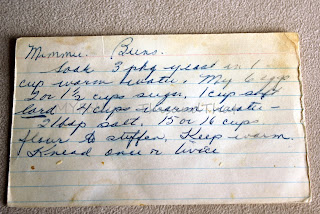 Mimmie. Buns.
Soak 3 pkg yeast in 1
cup warm water. May 6 egg
2 or 1/2 cups sugar. 1 cup soft
lard 4 cups warm water -
2 tbsp salt. 15 or 16 cups
flour to stiffen. Keep warm.
Knead once or twice